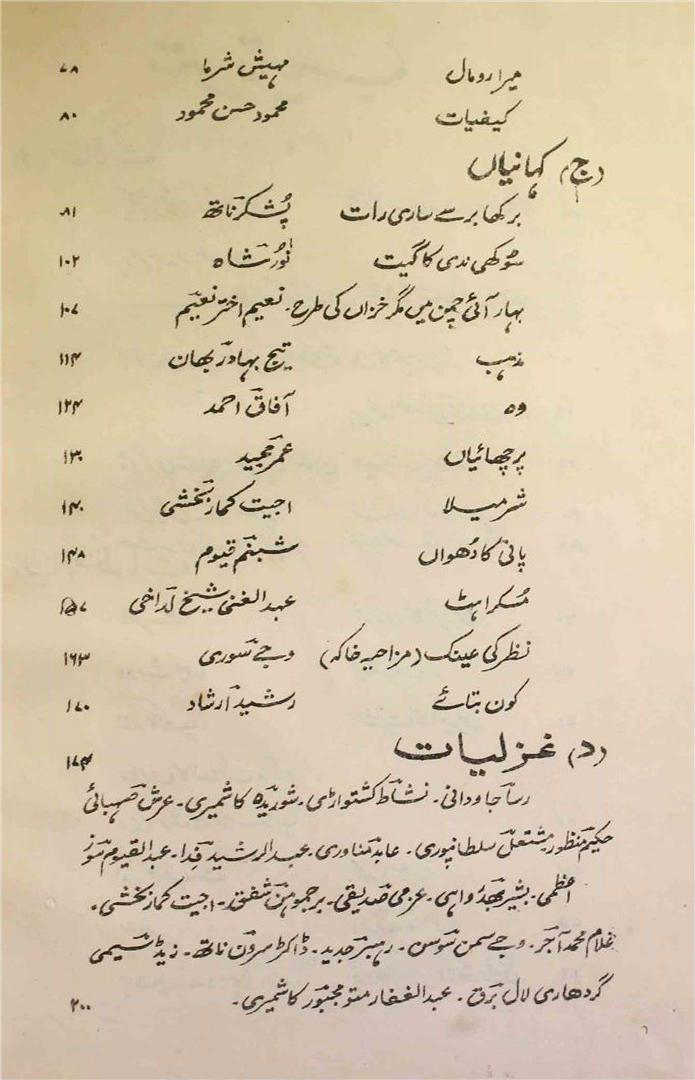 میرا رومال مہیش شرما ۷۸
کیفیات محمود حسن محمود ۸۰
(ج) کہانیاں
برکھا برسے ساری رات پُشکر ناتھ ۸۱
سُوکھی ندی کا گیت نُور شاہ ۱۰۲
بہار آئی چمن میں مگر خزاں کی طرح۔ نعیم اختر نعیم ۱۰۷
مذہب تیج بہادر بھان ۱۱۴
وہ آفاق احمد ۱۲۴
پرچھائیاں عمر مجید ۱۳۰
شرمیلا اجیت کمار بخشی ۱۴۰
پانی کا دُھواں شبنم قیوم ۱۴۸
مُسکراہٹ عبدالغنی شیخ لداخی ۱۵۷
نظر کی عینک (مزاحیہ خاکہ) وجے سوری ۱۶۳
کون بتائے رشید ارشاد ۱۷۰
(د) غزلیات ۱۷۴
رسا جاودانی۔ نشاط کشتواڑی۔ شوریدہ کاشمیری۔ عرش صہبائی
حکیم منظور۔ مشتعل سلطانپوری۔ عابد مناوری۔ عبدالرشید فدا۔ عبدالقیوم سوز
اعظمی۔ بشیر بھدرواہی۔ عزمی صدیقی۔ برجموہن شفق۔ اجیت کمار بخشی۔
غلام محمد آجر۔ وجے سمن سوسن۔ رہبر جدید۔ ڈاکٹر سرون ناتھ۔ زیڈ شیمی
گردھاری لال برق۔ عبدالغفار متو مجبور کاشمیری۔ ۲۰۰